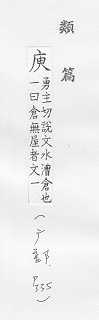 類篇
庾
勇主切說文水漕倉也
一曰倉無屋者文一
(广部. P335)